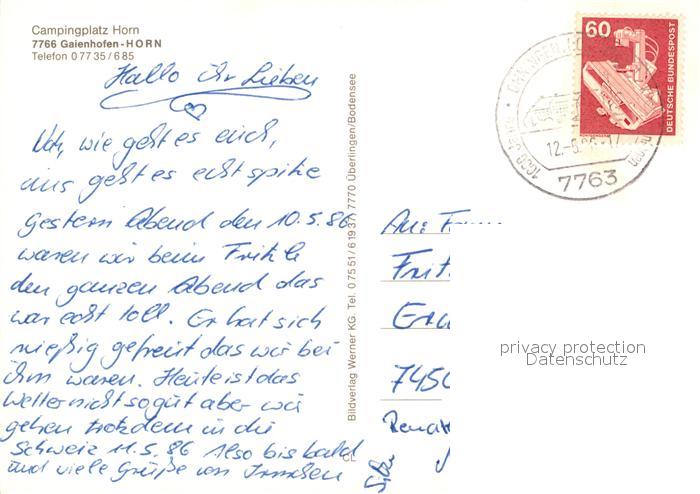 Campingplatz Horn
7766 Gaienhofen-HORN
Telefon 0 77 35 / 6 85
Hallo ihr Lieben
Na, wie geht es euch,
uns geht es echt spitze
Gestern Abend den 10.5.86
waren wir beim Fritzle
den ganzen Abend das
war echt toll. Er hat sich
mießig gefreut das wir bei
ihm waren. Heute ist das
Wetter nicht so gut aber wir
gehen trotzdem in die
Schweiz 11.5.86 Also bis bald
und viele Grüße von
Bildverlag Werner KG. Tel. 0 75 51 / 6 19 37 7770 Überlingen/Bodensee
60
DEUTSCHE BUNDESPOST
7763
An: Fam
Frit
745
privacy protection
Datenschutz